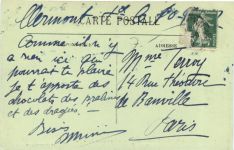 Clermont
CARTE POSTALE
ADRESSE
Comme il n'y
a rien ici qui
pourrait te plaire
je t'apporte des
chocolats des pralines
et des dragées.
Mme Perroy
14 Rue Théodore
de Banville
Paris